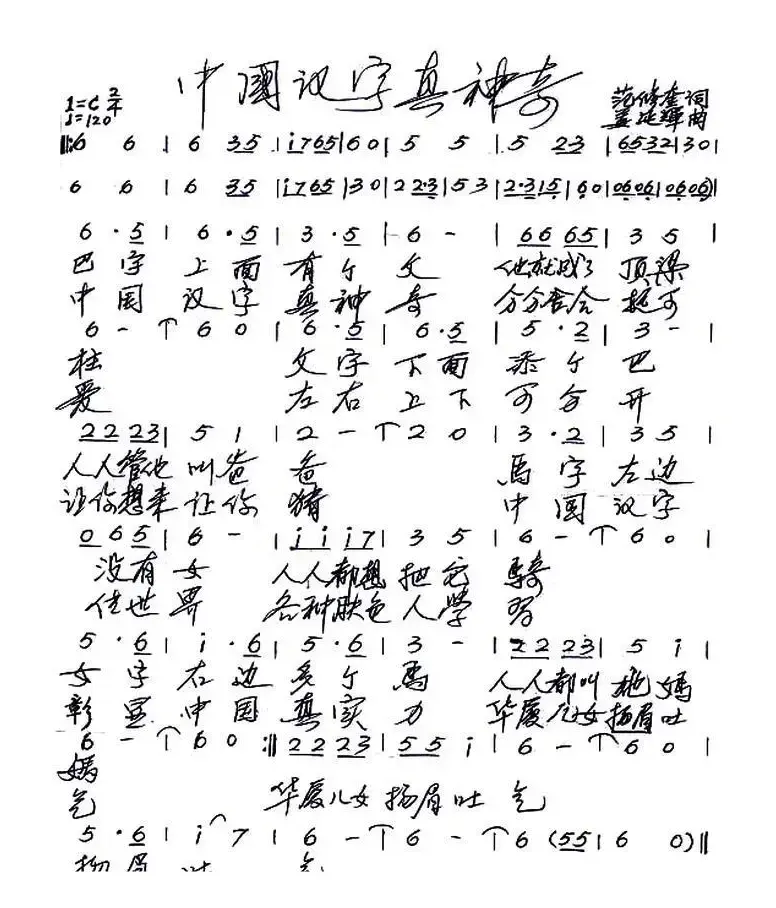 中國汉字真神奇
1=C 2/4 范修奎词
♩=120 孟延辉曲
‖:6 6 | 6 35 | i765 | 60 | 5 5 | 5 23 | 6532 | 30 |
6 6 | 6 35 | i765 | 30 | 22·3 | 53 | 2·315 | 60 | 0606 | 0606 ‖
6·5 | 6·5 | 3·5 | 6 - | 6665 | 3 5 |
巴字 上面 有个 父 他就成了 顶梁
中国 汉字 真神 奇 分分合合 挺可
6 - | 6 0 | 6·5 | 6·5 | 5·2 | 3 - |
柱 父字 下面 添个 巴
爱 左右 上下 可分 开
2223 | 5 1 | 2 - | 2 0 | 3·2 | 3 5 |
人人管他 叫爸 爸 馬字 左边
让你想来 让你 猜 中国 汉字
065 | 6 - | i i i7 | 3 5 | 6 - | 6 0 |
没有 女 人人都想 把它 騎
传世 界 各种肤色 人学 习
5·6 | i·6 | 5·6 | 3 - | 2223 | 5 i |
女字 右边 多个 馬 人人都叫 她媽
彰显 中国 真实 力 华厦儿女 扬眉吐
6 - | 6 0 :‖ 2223 | 55 i | 6 - | 6 0 |
媽
气 华厦儿女 扬眉吐 气
5·6 | i 7 | 6 - | 6 - | 6 (55 | 6 0) ‖
扬眉 吐 气